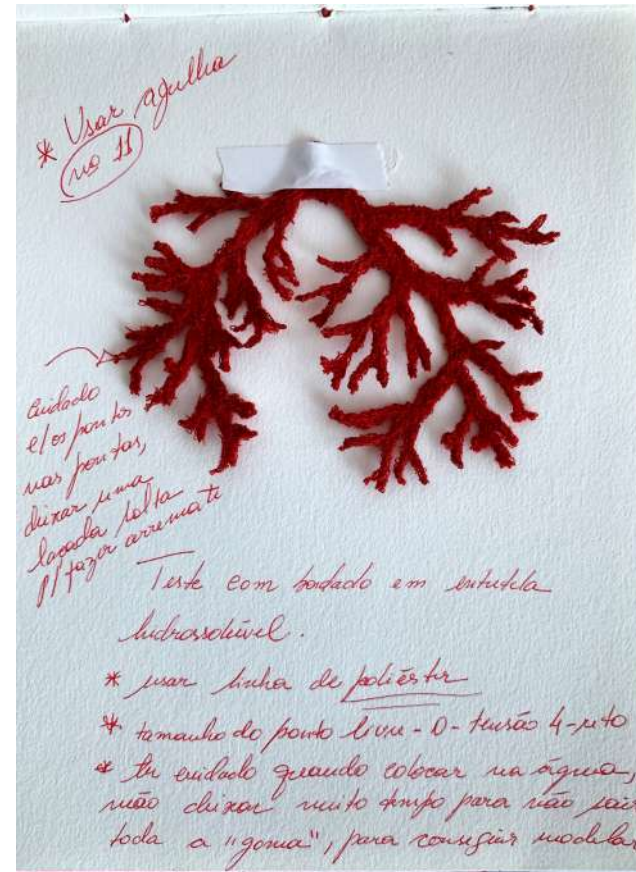 * Usar agulha
nº 11
cuidado
c/os pontos
nas pontas,
deixar uma
laçada solta
p/ fazer arremate
Teste com bordado em entretela
hidrossolúvel.
* usar linha de poliéster
* tamanho do ponto livre - 0 - tensão 4 - reto
* ter cuidado quando colocar na água,
não deixar muito tempo para não sair
toda a "goma", para conseguir modelar